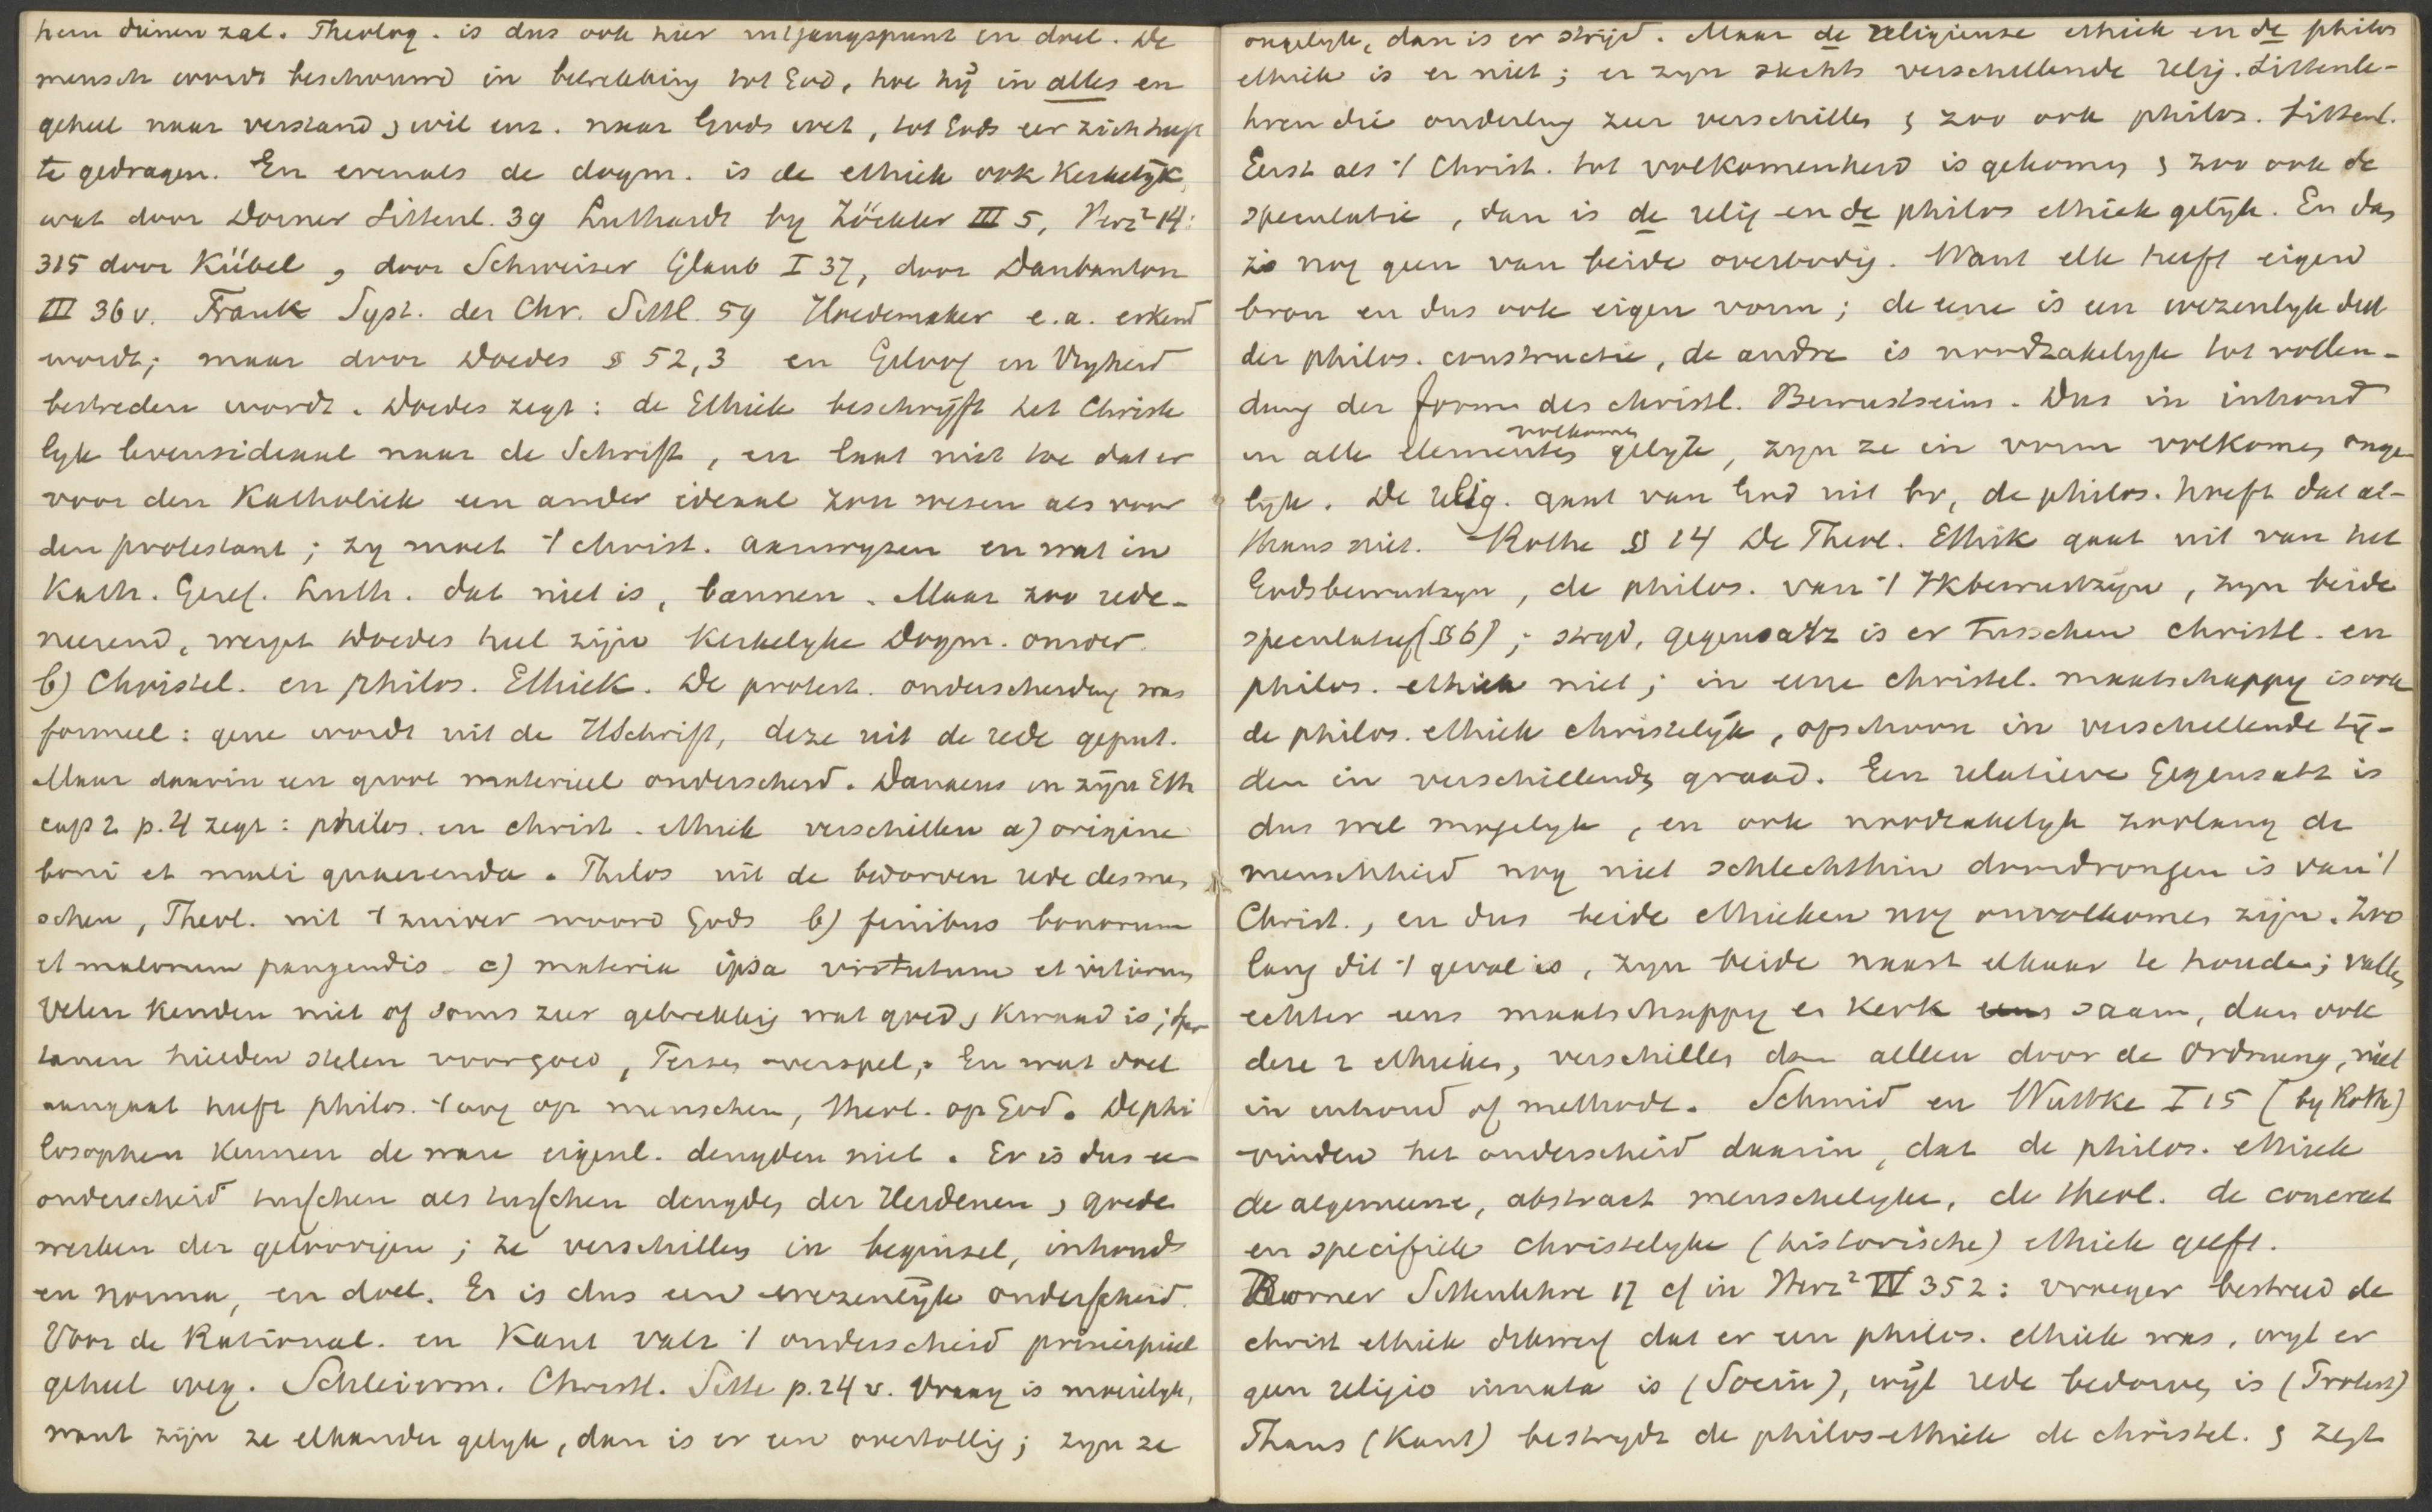 hem dienen zal. Theolog. is dus ook hier uitgangspunt en doel. De
mensch wordt beschouwd in betrekking tot God, hoe hij in alles en
geheel naar verstand, wil enz. naar Gods wet, tot Gods eer zich heeft
te gedragen. En evenals de dogm. is de ethiek ook Kerkelijk,
wat door Dorner Sittenl. 39 Luthardt by Zöckler III 5, Herz² 14:
315 door Kübel, door Schweizer Glaub I 37, door Daubanton
III 36 v. Frank Syst. der Chr. Sittl. 59 Hoedemaker e.a. erkend
wordt; maar door Doedes § 52,3 en Geloof en Vryheid
bestreden wordt. Doedes zegt: de Ethiek beschrijft het Christe
lyk levensideaal naar de Schrift, en laat niet toe dat er
voor den Katholiek een ander ideaal zou wesen als voor
den protestant; zy moet 't christ. aanwyzen en wat in
Kath. Geref. Luth. dat niet is, bannen. Maar zoo rede-
neerend, werpt Doedes heel zijn Kerkelyke Dogm. omver.
b) Christel. en philos. Ethiek. De protest. onderscheiding was
formeel: gene wordt uit de HSchrift, deze uit de rede geput.
Maar daarin een groot materieel onderscheid. Danaeus in zijn Eth
cap 2 p. 4 zegt: philos. en christ. ethiek verschillen a) origine
boni et mali quaerenda. Philos uit de bedorven rede des men
schen, Theol. uit 't zuiver woord Gods b) finibus bonorum
et malorum pangendis c) materia ipsa virtutum et vitiorum
Velen kenden niet of soms zeer gebrekkig wat goed, kwaad is; Spar
tanen hielden stelen voor goed, Perzen overspel, En wat doel
aangaat heeft philos. 't oog op menschen, theol. op God. De phi
losophen kennen de ware eigenl. deugden niet. Er is dus een
onderscheid tusschen als tusschen deugden der Heidenen, goede
werken der geloovigen; ze verschillen in beginsel, inhoud
en norma, en doel. Er is dus een wezenlijk onderscheid.
Voor de Rational. en Kant valt 't onderscheid principieel
geheel weg. Schleierm. Christl. Sitte p. 24 v. Vraag is moeielyk,
want zijn ze elkander gelyk, dan is er een overtollig; zyn ze
ongelyk, dan is er stryd. Maar de religieuse ethiek en de philos
ethiek is er niet; er zyn slechts verschillende relig. Sittenle-
hren die onderling zeer verschillen, zoo ook philos. Sittenl.
Eerst als 't Christ. tot volkomenheid is gekomen, zoo ook de
speculatie, dan is de relig en de philos ethiek gelijk. En dan
is nog geen van beide overbodig. Want elk heeft eigen
bron en dus ook eigen vorm; de eene is een wezenlyk deel
der philos. constructie, de andre is noodzakelyk tot vollen-
dung der form des christl. Bewustseins. Dus in inhoud
in alle elementen volkomen gelyk, zyn ze in vorm volkomen onge
lyk. De relig. gaat van God uit bv, de philos. hoeft dat al-
thans niet. Rothe § 14 De Theol. Ethik gaat uit van het
Godsbewustzyn, de philos. van 't Ikbewustzijn, zyn beide
speculatief (§ 6); stryd, gegensatz is er tusschen christl. en
philos. ethiek niet; in eene christel. maatschappy is ook
de philos. ethiek christelijk, ofschoon in verschillende tij-
den in verschillende graad. Een relatieve Gegensatz is
dus wel mogelyk, en ook noodzakelyk zoolang de
menschheid nog niet schlechthin doordrongen is van 't
Christ., en dus beide ethieken nog onvolkomen zijn. Zoo
lang dit 't geval is, zyn beide naast elkaar te houden; vallen
echter eens maatschappy en Kerk saam, dan ook
deze 2 ethieken, verschillen dan alleen door de Ordnung, niet
in inhoud of methode. Schmid en Wuttke I 15 (by Rothe)
vinden het onderscheid daarin, dat de philos. ethiek
de algemeene, abstract menschelyke, de theol. de concreet
en specifiek christelyke (historische) ethiek geeft.
Dorner Sittenlehre 17 cf in Herz² IV 352: vroeger bestreed de
christ ethiek dat er een philos. ethiek was, wyl er
geen religio innata is (Socin), wijl rede bedorven is (Protest)
Thans (Kant) bestrydt de philos-ethiek de christel. , zegt